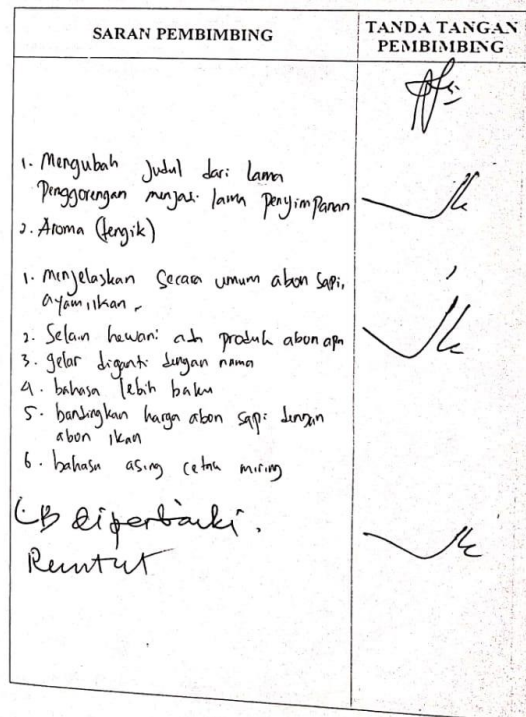 SARAN PEMBIMBING
TANDA TANGAN
PEMBIMBING
1. Mengubah Judul dari lama
Penggorengan menjadi lama Penyimpanan
2. Aroma (tengik)
1. Menjelaskan Secara umum abon Sapi,
ayam, ikan,
2. Selain hewani ada produk abon apa
3. gelar diganti dengan nama
4. bahasa lebih baku
5. bandingkan harga abon sapi dengan
abon ikan
6. bahasa asing cetak miring
LB diperbaiki.
Runtut